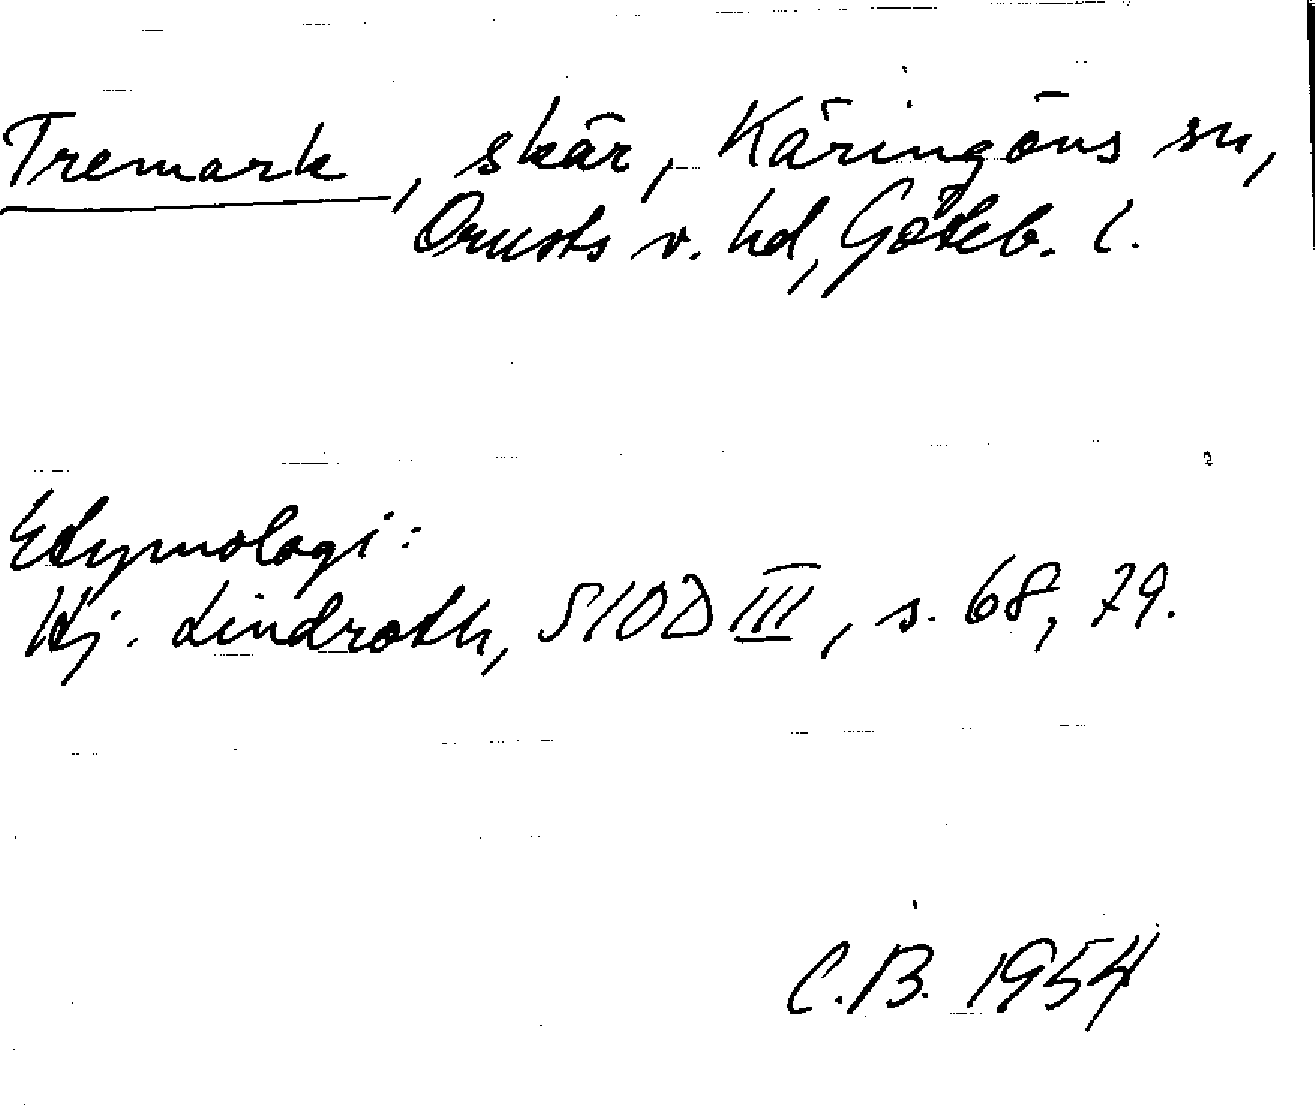 Tremark, skär, Käringöns sn,
Orusts v. hd, Göteb. l.
Etymologi:
Hj. Lindroth, SIOD III, s. 68, 79.
C.B. 1954